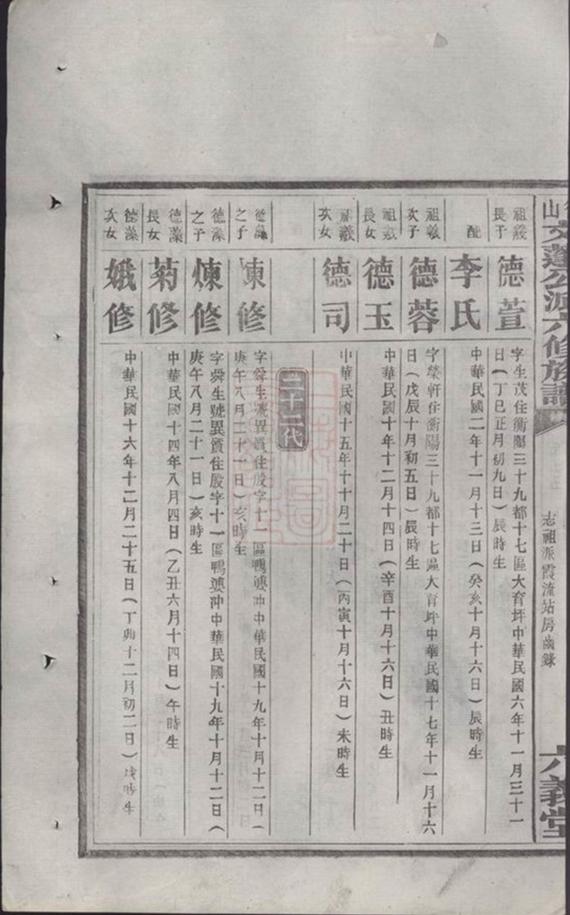 山文蓬公派六修族譜
志祖派霞流站房齒錄
六義堂
祖羲長子
德萱
字生茂住衡陽三十九都十七區大育坪中華民國六年十一月三十一日(丁巳正月初九日)辰時生
配
李氏
中華民國二年十一月十三日(癸亥十月十六日)辰時生
祖羲次子
德蓉
字榮軒住衡陽三十九都十七區大育坪中華民國十七年十一月十六日(戊辰十月初五日)辰時生
祖羲長女
德玉
中華民國十年十二月十四日(辛酉十月十六日)丑時生
祖羲次女
德司
中華民國十五年十十月二十日(丙寅十月十六日)未時生
二十一代
德藻之子
字舜生號異質住股字十一區鴨婆冲中華民國十九年十月十二日(庚午八月二十一日)亥時生
德藻之子
煉修
字舜生號異質住股字十一區鴨婆冲中華民國十九年十月十二日(庚午八月二十一日)亥時生
德藻長女
菊修
中華民國十四年八月四日(乙丑六月十四日)午時生
德藻次女
娥修
中華民國十六年十二月二十五日(丁卯十二月初二日)戌時生